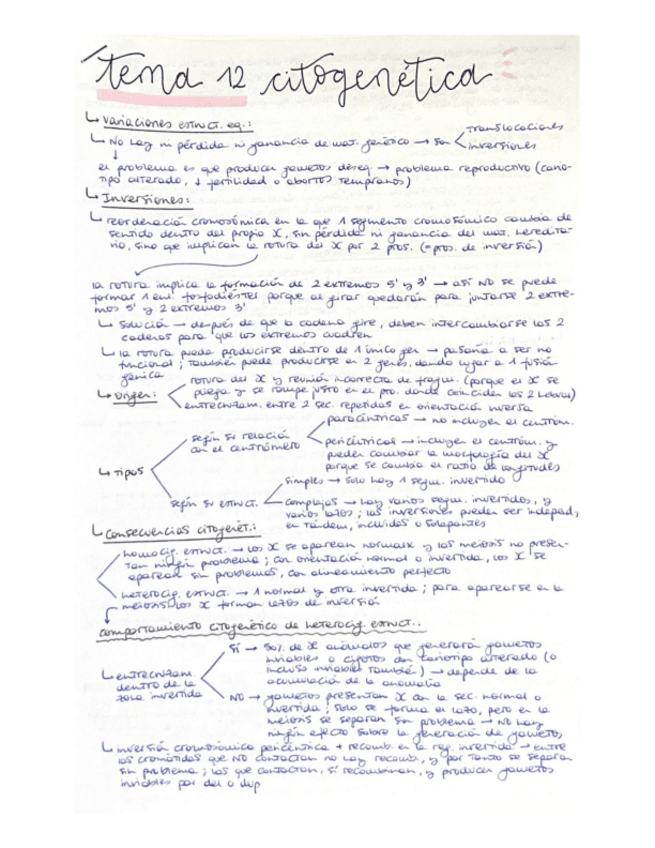 tema 12 citogenética
↳ Variaciones estruct. eq.:
↳ No hay ni pérdida ni ganancia de mat. genético → son < translocaciones
inversiones
el problema es que producen gametos deseq → problema reproductivo (cario-
tipo alterado, ↓ fertilidad o abortos tempranos)
↳ Inversiones:
↳ reordenación cromosómica en la que 1 segmento cromosómico cambia de
sentido dentro del propio X, sin pérdida ni ganancia del mat. heredita-
rio, sino que implican la rotura del X por 2 ptos. (= ptos. de inversión)
la rotura implica la formación de 2 extremos 5' y 3' → así NO se puede
formar 1 enl. fosfodiéster porque al girar quedarán para juntarse 2 extre-
mos 5' y 2 extremos 3'
↳ Solución → después de que la cadena gire, deben intercambiarse las 2
cadenas para que los extremos cuadren
↳ la rotura puede producirse dentro de 1 único gen → pasaría a ser no
funcional; también puede producirse en 2 genes, dando lugar a 1 fusión
génica
↳ Origen: < rotura del X y reunión incorrecta de fragm. (porque el X se
pliega y se rompe justo en el pto. donde coinciden las 2 hebras)
entrecruzam. entre 2 sec. repetidas en orientación inversa
↳ tipos
según su relación con el centrómero
paracéntricas → no incluyen el centróm.
pericéntricas → incluyen el centróm. y
pueden cambiar la morfología del X
porque se cambia el ratio de longitudes
según su estruct.
simples → solo hay 1 segm. invertido
complejas → hay varios segm. invertidos, y
varios lazos; las inversiones pueden ser independ,
en tándem, incluidas o solapantes
↳ Consecuencias citogenét.:
homocig. estruct. → los X se aparean normalx y las meiosis no presen-
tan ningún problema; con orientación normal o invertida, los X se
aparean sin problemas, con alineamiento perfecto
heterocig. estruct. → 1 normal y otra invertida; para aparearse en la
meiosis los X forman lazos de inversión
comportamiento citogenético de heterocig. estruct.:
↳ entrecruzam.
dentro de la
zona invertida
SÍ → 50% de X anómalos que generarán gametos
inviables o cigotos con cariotipo alterado (o
incluso inviables también) → depende de la
acumulación de la anomalía
NO → gametos presentan X con la sec. normal o
invertida; solo se forma el lazo, pero en la
meiosis se separan sin problema → no hay
ningún efecto sobre la generación de gametos
↳ inversión cromosómica pericéntrica + recomb. en la reg. invertida → entre
las cromátidas que NO contactan no hay recomb, y por tanto se separan
sin problema; las que contactan, sí recombinan, y producen gametos
inviables por del o dup